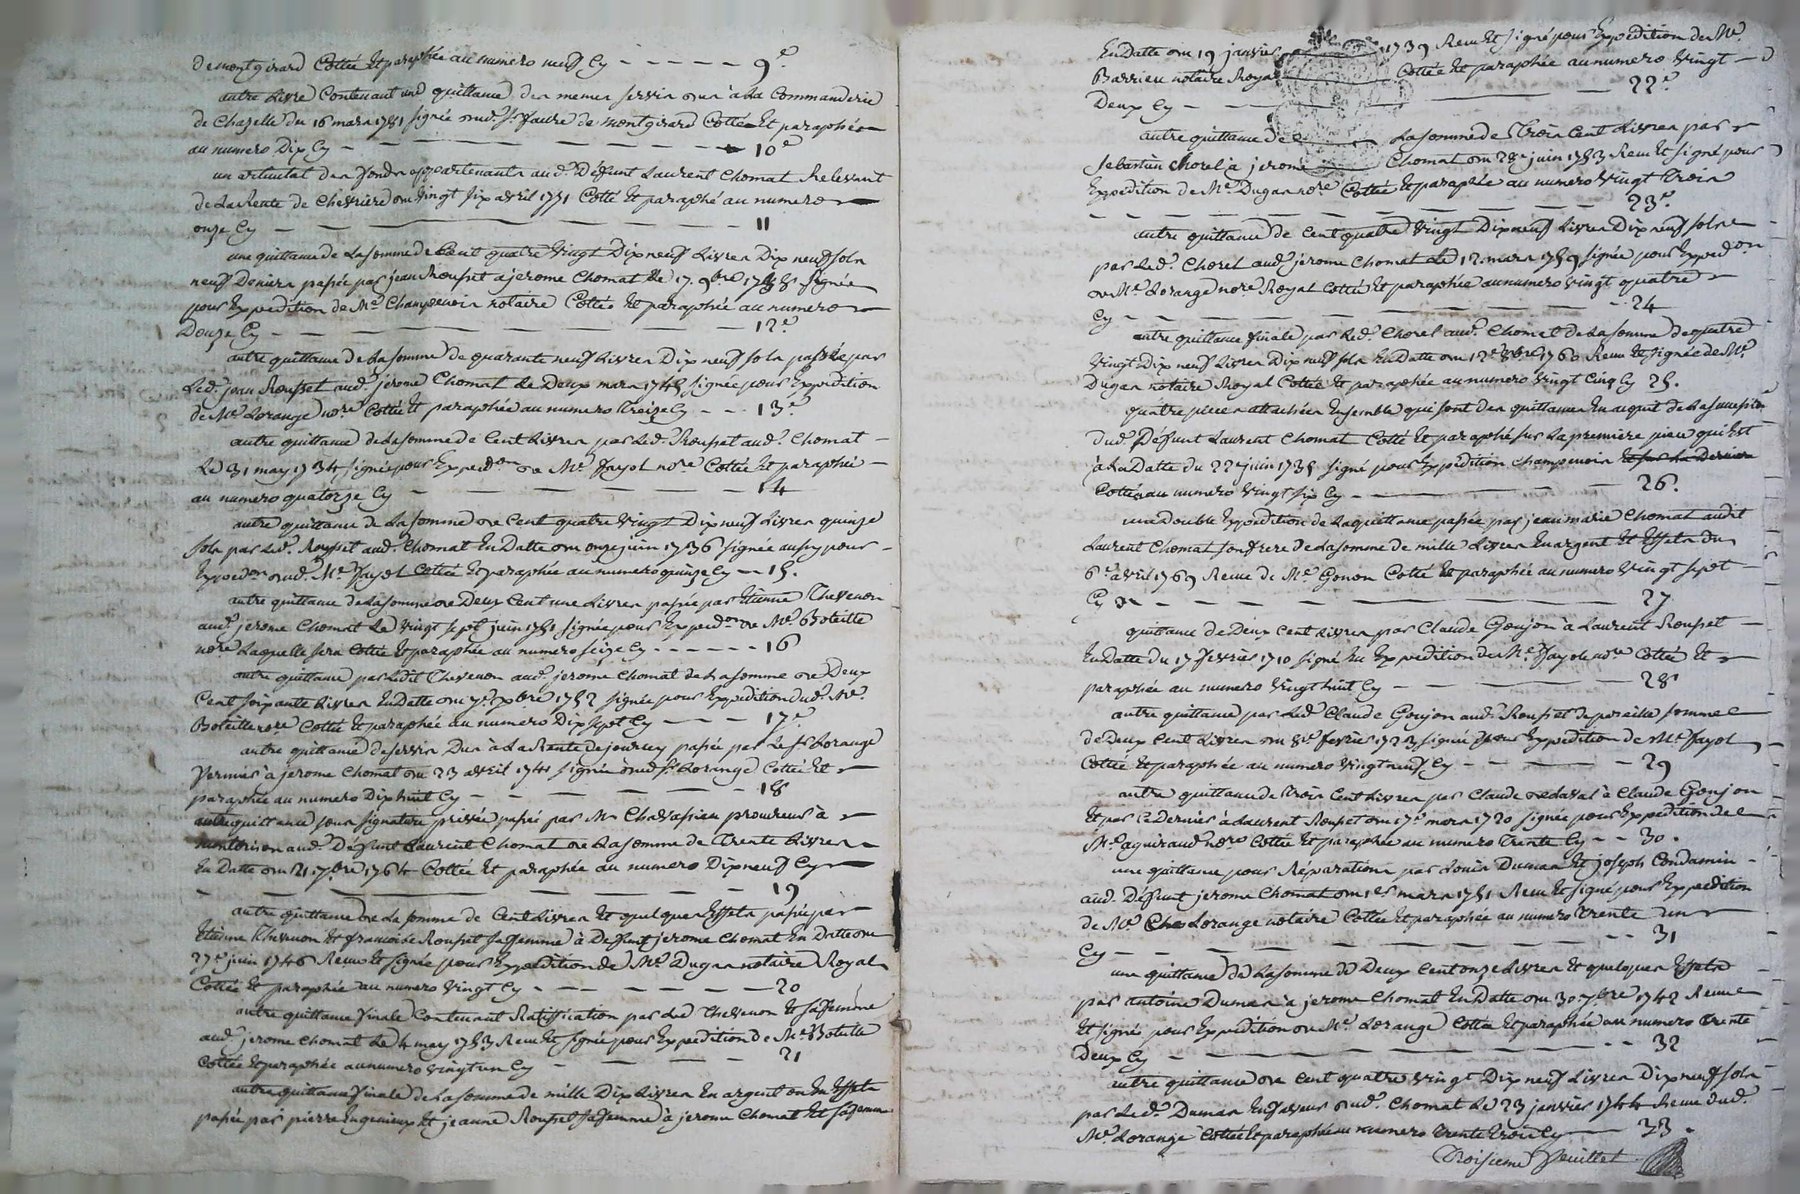 de montgirard Cottée Et paraphée au numero neuf Cy - - - - - 9e.
autre Livre Contenant une quittance des memes servis deus à La Commanderie
de Chazelle du 16 mars 1751 signée dud. Sr. faure de montgirard Cottée Et paraphée
au numero Dix Cy - - - - - 10e
un articulat des fonds appartenants aud. Déffunt Laurent Chomat Relevant
de La Rente de Chevriere du vingt six avril 1751 Cotté Et paraphé au numero
onze Cy - - - - - 11
une quittance de La somme de Cent quatre vingt Dix neuf Livres Dix neuf sols
neuf Deniers passée par jean Rousset a jerome Chomat Le 17. 9bre 1738 signée
pour Expedition de Me. Champenois notaire Cottée Et paraphée au numero
Douze Cy - - - - - 12e
autre quittance de La somme de quarante neuf Livres Dix neuf sols passée par
Led. jean Rousset aud. jerome Chomat Le Deux mars 1745 signée pour Expedition
de Me. Lorange nore. Cottée Et paraphée au numero treize Cy - - 13e
autre quittance de La somme de Cent Livres par Led. Rousset aud. Chomat
Le 31 may 1734 signée pour Expedon. de Me. fayol nore Cottée Et paraphée
au numero quatorze Cy - - - - - 14
autre quittance de La somme de Cent quatre vingt Dix neuf Livres quinze
sols par Led. Rousset aud. Chomat En Datte du onze juin 1736 signée aussy pour
Expedon dud. Me. fayol Cottée Et paraphée au numero quinze Cy - 15.
autre quittance de La somme de Deux Cent une Livres passée par Etienne Thevenon
aud. jerome Chomat Le vingt sept juin 1751 signée pour Expedon. de Me. Boteille
nore. Laquelle sera Cottée Et paraphée au numero seize Cy - - - - - - 16
autre quittance par Ledit Thevenon aud. jerome Chomat de La somme de Deux
Cent soixante Livres En Datte du 7e. xbre 1752 signée pour Expedition dud. Me.
Boteille nore. Cottée Et paraphée au numero Dix sept Cy - - - - 17e
autre quittance de servis Dus à La Rente de joursey passée par Le Sr. Lorange
fermier à jerome Chomat du 23 avril 1741 signée dud. Sr. Lorange Cottée Et
paraphée au numero Dix huit Cy - - - - - 18
autre quittance sous signature privée passée par Me. Chavassieu procureur à
montbrison aud. Deffunt Laurent Chomat de La somme de Trente Livres
En Datte du 21. 7bre 1764 Cottée Et paraphée au numero Dix neuf Cy
- - - - - 19
autre quittance de La somme de Cent Livres Et quelques Effets passée par
Etienne Thevenon Et francoise Rousset sa femme à Deffunt jerome Chomat En Datte du
27e. juin 1746 Recue Et signée pour Expedition de Me. Dugas notaire Royal
Cottée Et paraphée au numero vingt Cy - - - - - 20
autre quittance finale Contenant Ratiffication par led. Thevenon Et sa femme
aud. jerome Chomat Le 4 may 1753 Recue Et signée pour Expedition de Me. Boteille
Cottée Et paraphée au numero vingt un Cy - - - - - 21
autre quittance finale de La somme de mille Dix Livres En argent ou En Effets
passée par pierre Ingenieux Et jeanne Rousset sa femme à jerome Chomat Et sa femme
En Datte du 19 janvier 1739 Recue Et signé pour Expedition de Me.
Barrieu notaire Royal Cottée Et paraphée au numero Vingt
Deux Cy - - - - - 22e.
autre quittance de La somme de Trois Cent Livres par
Sebastien Chorel à jerome Chomat du 28e juin 1753 Recue Et signé pour
Expedition de Me. Dugas nore. Cottée Et paraphée au numero vingt Trois
- - - - - 23e.
autre quittance de Cent quatre vingt Dix neuf Livres Dix neuf sols
par Led. Chorel aud. jerome Chomat Le 12 mars 1759 signée pour Expedon
de Me. Lorange nore. Royal Cottée Et paraphée au numero vingt quatre
Cy - - - - - 24
autre quittance finale par Led. Chorel aud. Chomat de La somme de quatre
vingt Dix neuf Livres Dix neuf sols En Datte du 12e xbre 1760 Recue Et signée de Me.
Dugas notaire Royal Cottée Et paraphée au numero vingt Cinq Cy 25.
quatre pieces attachées Ensemble qui sont des quittances En acquit de La succession
dud. Déffunt Laurent Chomat Cotté Et paraphé sur La premiere piece qui Est
à La Datte du 22e juin 1735 signé pour Expedition Champenois Et sur La Derniere
Cottée au numero vingt six Cy - - - - - 26.
une double Expedition de La quittance passée par jean marie Chomat audit
Laurent Chomat son frere de La somme de mille Livres En argent Et Effets du
6e. avril 1769 Recue de Me. Gonon Cotté Et paraphée au numero vingt sept
Cy - - - - - 27
quittance de Deux Cent Livres par Claude Goujon à Laurent Rousset
En Datte du 17 fevrier 1710 signé En Expedition de Me. fayol nore Cottée Et
paraphée au numero vingt huit Cy - - - - - 28
autre quittance par Led. Claude Goujon aud. Rousset de pareille somme
de Deux Cent Livres du 8e. fevrier 1723 signée pour Expedition de Me. fayol
Cottée Et paraphée au numero vingt neuf Cy - - - - - 29
autre quittance de Trois Cent Livres par Claude de daval à Claude Goujon
Et par Ce dernier à Laurent Rousset du 17e mars 1720 signée pour Expedition de
Me. aguiraud nore. Cottée Et paraphée au numero Trente Cy - - 30.
une quittance pour Réparations par Louis Dumas Et joseph Condamin
aud. Déffunt jerome Chomat du 1er mars 1751 Recue Et signé pour Expedition
de Me. Lorange notaire Cottée Et paraphée au numero Trente un
Cy - - - - - 31
une quittance de La somme de Deux Cent onze Livres Et quelques Effets
par antoine Dumas à jerome Chomat En Datte du 30 7bre 1742 Recue
Et signée pour Expedition de Me. Lorange Cottée Et paraphée au numero trente
Deux Cy - - - - - 32
autre quittance de Cent quatre vingt Dix neuf Livres Dix neuf sols
par Led. Dumas En faveur dud. Chomat Le 23 janvier 1744 Recue dud.
Me. Lorange Cottée Et paraphée au numero trente trois Cy - 33.
Troisieme feuillet